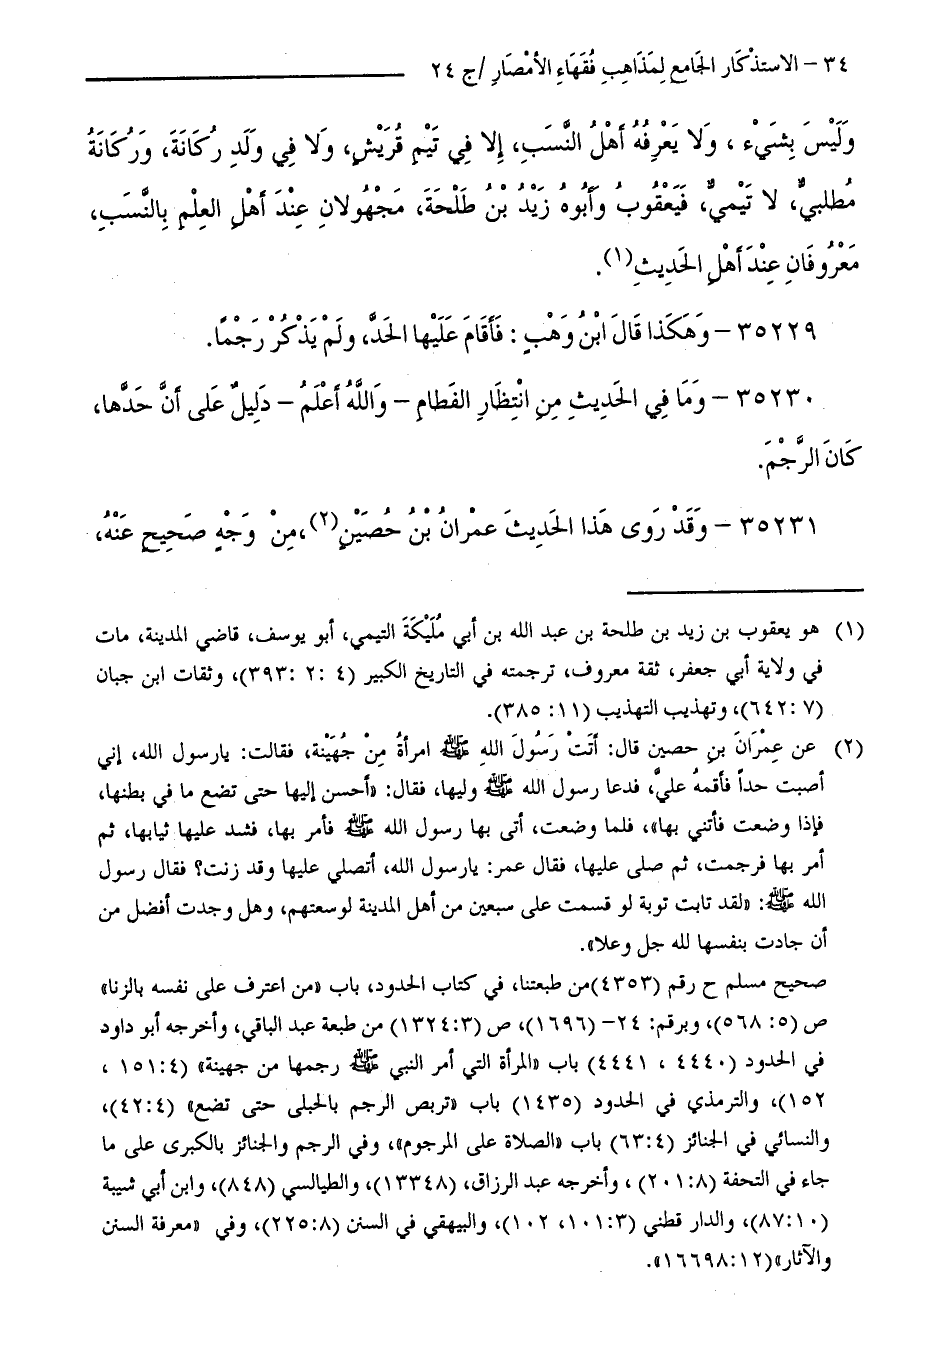 ٣٤ - الاستذْكَار الجَامع لِمَذَاهِبِ فُقَهَاءِ الأمْصَارِ /ج ٢٤
وَلَيْسَ بِشَيْء ، وَلا يَعْرِفُهُ أَهْلُ النَّسَبِ، إِلا فِي تَيْمِ قُرَيْشٍ، وَلا فِي وَلَدِ رُكَانَةَ، وَرُكَانَةُ
مُطلبيٌّ، لا تَيْمِيٌّ، فَيَعْقُوبُ وَأَبُوه زَيْدُ بْنُ طَلْحَةَ، مَجْهُولانِ عِنْدَ أَهْلِ العِلْمِ بِالنَّسَبِ،
مَعْرُوفَانِ عِنْدَ أَهْلِ الحَدِيثِ(١).
٣٥٢٢٩ - وَهَكَذا قَالَ ابْنُ وَهْبٍ : فَأَقَامَ عَلَيْها الحَدَّ، ولَمْ يَذْكُرْ رَجْمًا.
٣٥٢٣٠ - وَمَا فِي الحَدِيثِ مِنِ انْتِظَارِ الفَطامِ - وَاللَّهُ أَعْلَمُ - دَلِيلٌ عَلى أَنَّ حَدَّها،
كَانَ الرَّجْمَ.
٣٥٢٣١ - وَقَدْ رَوَى هَذا الحَدِيثَ عمْرانُ بْنُ حُصَيْنٍ(٢)،مِنْ وَجْهٍ صَحِيحٍ عَنْهُ،
(١) هو يعقوب بن زيد بن طلحة بن عبد الله بن أبي مُلَيْكَةَ التيمي، أبو يوسف، قاضي المدينة، مات
في ولاية أبي جعفر، ثقة معروف، ترجمته في التاريخ الكبير (٤ :٢ :٣٩٣)، وثقات ابن حبان
(٧ :٦٤٢)، وتهذيب التهذيب (١١: ٣٨٥).
(٢) عن عِمْرَانَ بنِ حصين قال: أتَتْ رَسُولَ اللهِ ﷺ امرأةُ مِنْ جُهَيْنة، فقالت: يارسول الله، إني
أصبت حداً فأقمهُ عليَّ، فدعا رسول الله ﷺ وليها، فقال: «أحسن إليها حتى تضع ما في بطنها،
فإذا وضعت فأتني بها»، فلما وضعت، أتى بها رسول الله ﷺ فأمر بها، فشد عليها ثيابها، ثم
أمر بها فرجمت، ثم صلى عليها، فقال عمر: يارسول الله، أتصلي عليها وقد زنت؟ فقال رسول
الله ﷺ: «لقد تابت توبة لو قسمت على سبعين من أهل المدينة لوسعتهم، وهل وجدت أفضل من
أن جادت بنفسها لله جل وعلا».
صحيح مسلم ح رقم (٤٣٥٣)من طبعتنا، في كتاب الحدود، باب «من اعترف على نفسه بالزنا»
ص (٥: ٥٦٨)، وبرقم: ٢٤- (١٦٩٦)، ص (٣:١٣٢٤) من طبعة عبد الباقي، وأخرجه أبو داود
في الحدود (٤٤٤٠ ، ٤٤٤١) باب «المرأة التي أمر النبي ﷺ رجمها من جهينة» (٤:١٥١ ،
١٥٢)، والترمذي في الحدود (١٤٣٥) باب «تربص الرجم بالحبلى حتى تضع» (٤:٤٢)،
والنسائي في الجنائز (٤:٦٣) باب «الصلاة على المرجوم»، وفي الرجم والجنائز بالكبرى على ما
جاء في التحفة (٨:٢٠١) ، وأخرجه عبد الرزاق، (١٣٣٤٨)، والطيالسي (٨٤٨)، وابن أبي شيبة
(١٠:٨٧)، والدار قطني (٣:١٠١، ١٠٢)، والبيهقي في السنن (٨:٢٢٥)، وفي «معرفة السنن
والآثار»(١٢:١٦٦٩٨».